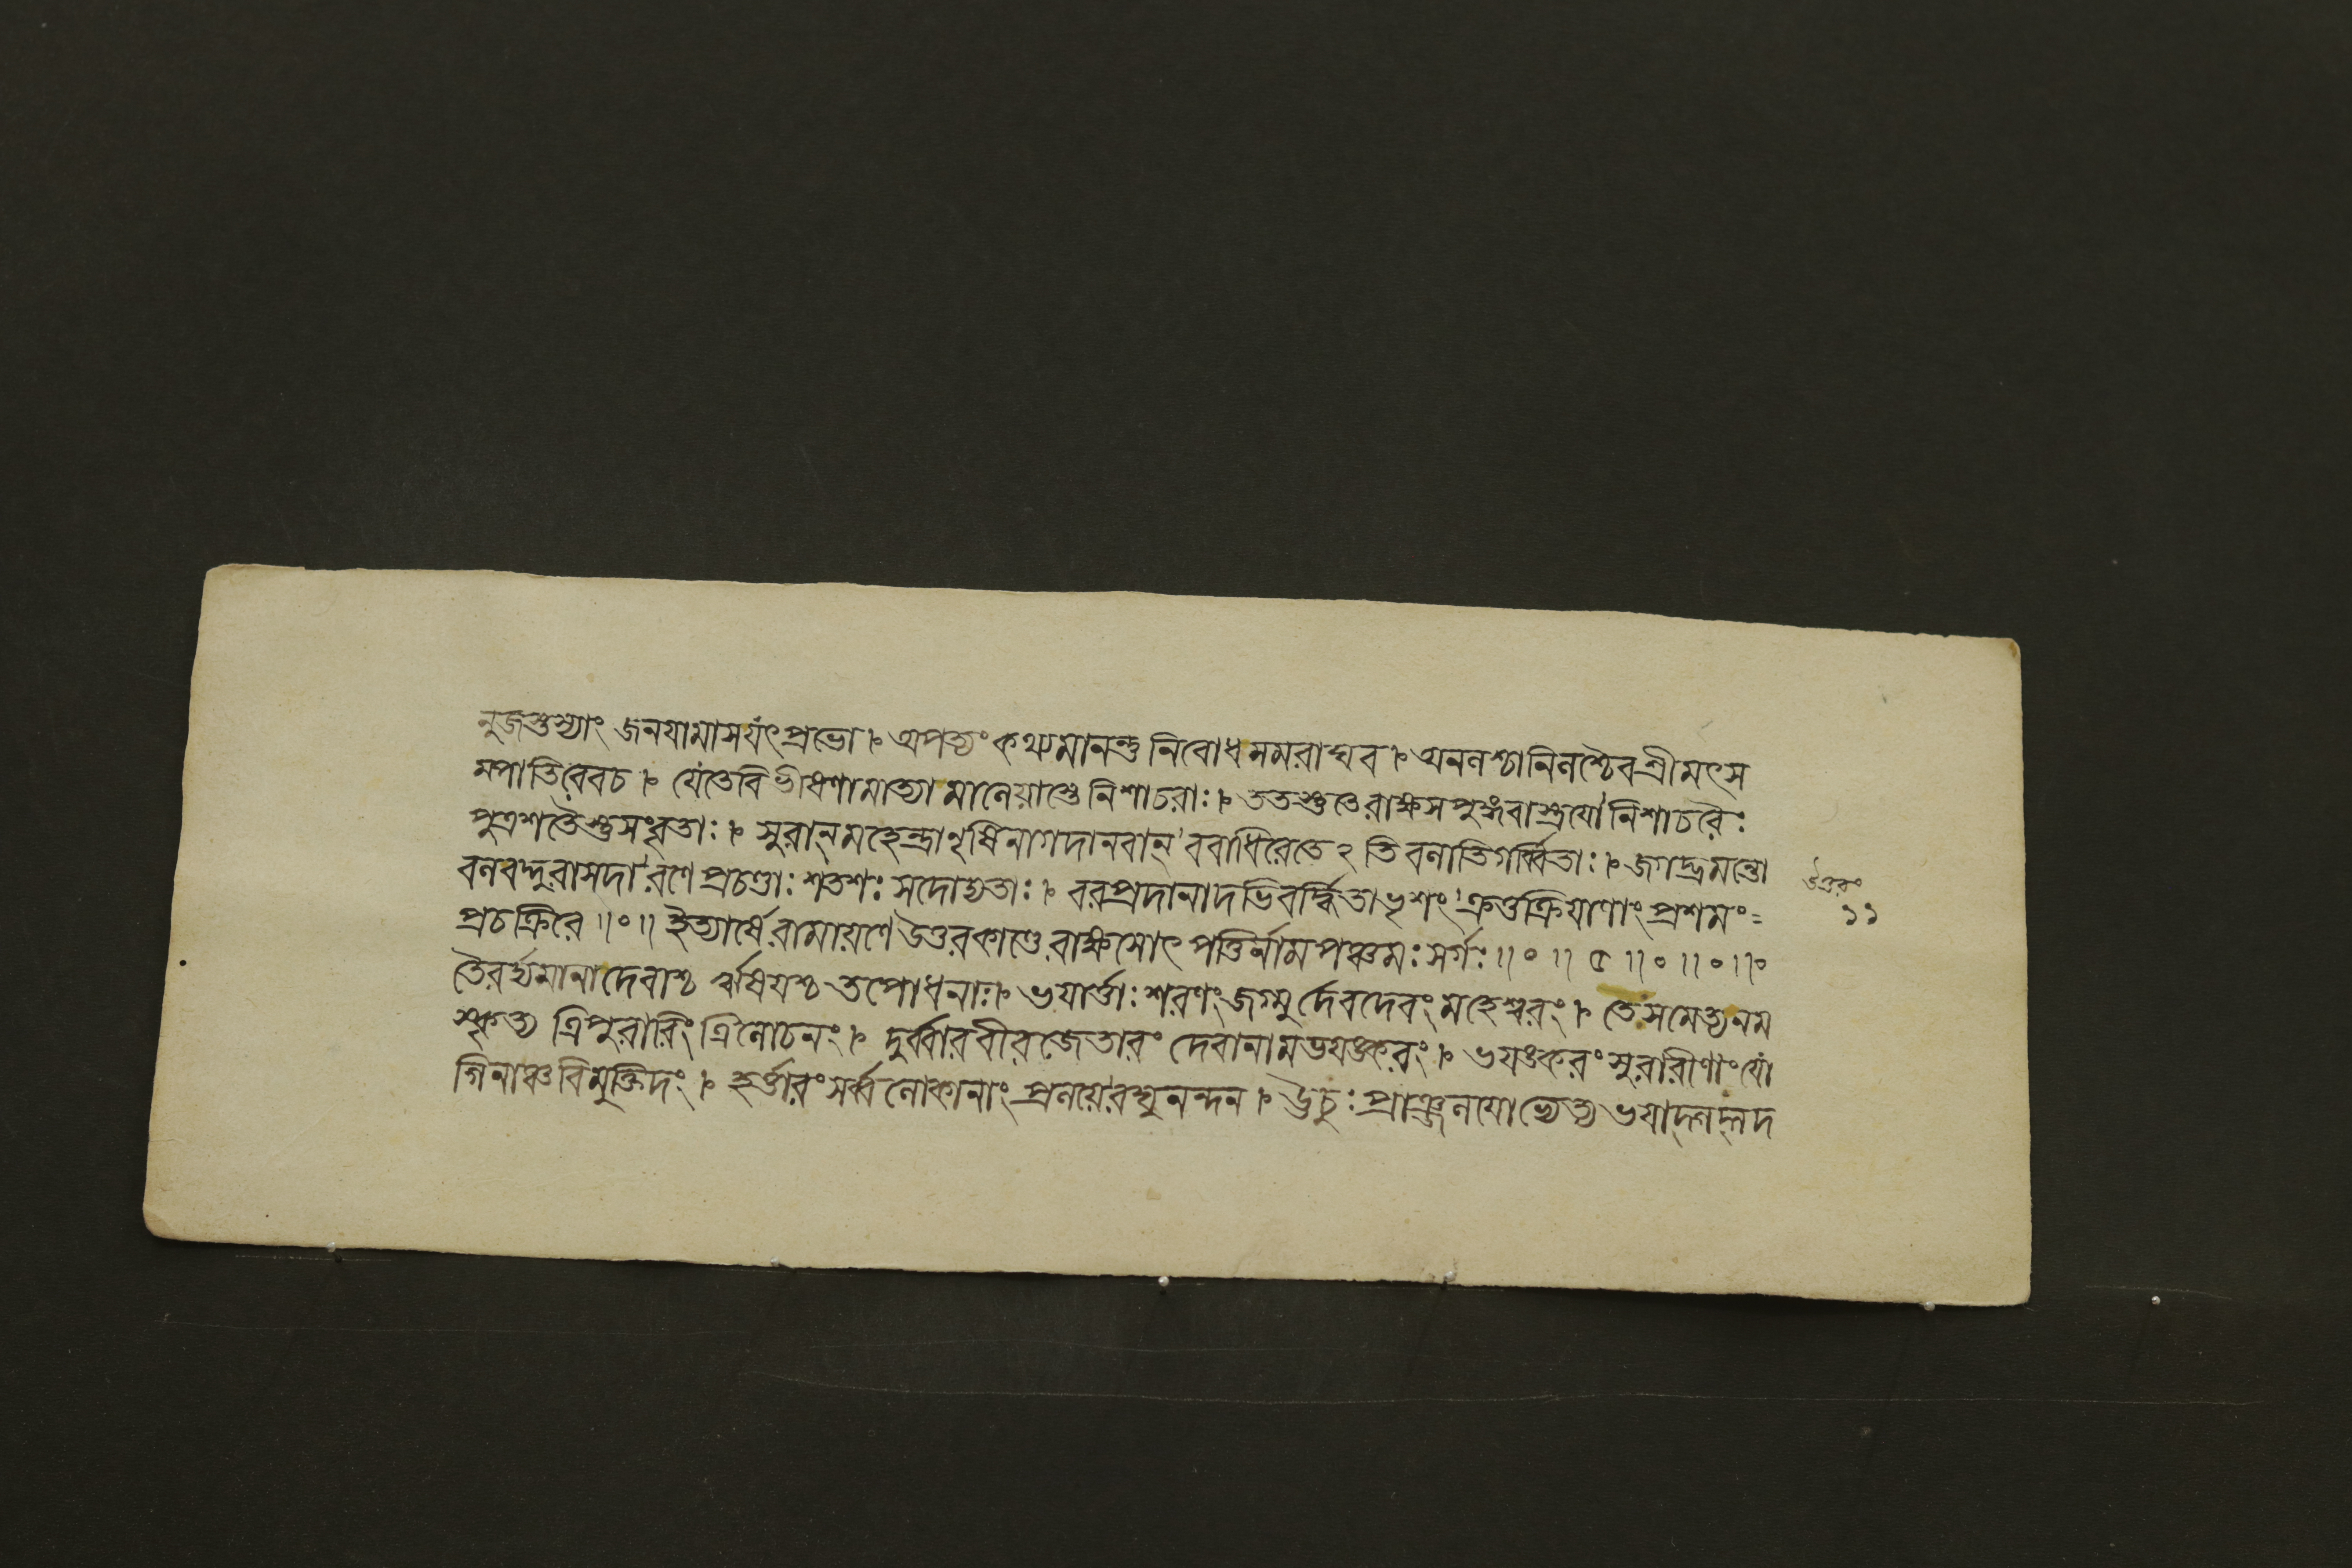 নুজস্তস্যাং জনযামাস যৎপ্রভো । অপত্যং কথ্যমানন্তু নিবোধ মম রাঘব । অনলশ্চানিলশ্চৈব শ্রীমৎস
ম্পাতিরেবচ । যেতে বিভীষণামাত্যা মালেয়াস্তে নিশাচরাঃ । ততস্তুতে রাক্ষসপুঙ্গবাস্ত্রযো নিশাচরৈঃ
পুত্রশতৈস্তুসংবৃতাঃ । সুরান্ মহেন্দ্রানৃষিনাগদানবান্ ববাধিরেতেঽতিবলাতিগর্ব্বিতাঃ । জগদ্ভ্রমন্তো
বলবদ্দুরাসদা রণে প্রচণ্ডাঃ শতশঃ সদোদ্যতাঃ । বরপ্রদানাদভিবর্দ্ধিতাভৃশং ক্রতুক্রিযাণাং প্রশমং
প্রচক্রিরে ॥০॥ ইত্যার্ষে রামায়ণে উত্তরকাণ্ডে রাক্ষসোৎপত্তির্নাম পঞ্চমঃ সর্গঃ ॥০॥ ৫ ॥০॥০॥০
তৈরর্দ্যমানা দেবাশ্চ ঋষিযশ্চ তপোধনাঃ । ভযার্ত্তাঃ শরণং জগ্মুর্দেবদেবং মহেশ্বরং । তে সমেত্য নম
স্কৃত্য ত্রিপুরারিং ত্রিলোচনং । দুর্ব্বারবীরজেতারং দেবানামভযঙ্করং । ভযঙ্করং সুরারীণাং যো
গিনাঞ্চ বিমুক্তিদং । হর্ত্তারং সর্ব্বলোকানাং প্রলয়ে রঘুনন্দন । উচুঃ প্রাঞ্জলযোভ্যেত্য ভযাদ্গদ্গদ
উত্তরং
১১